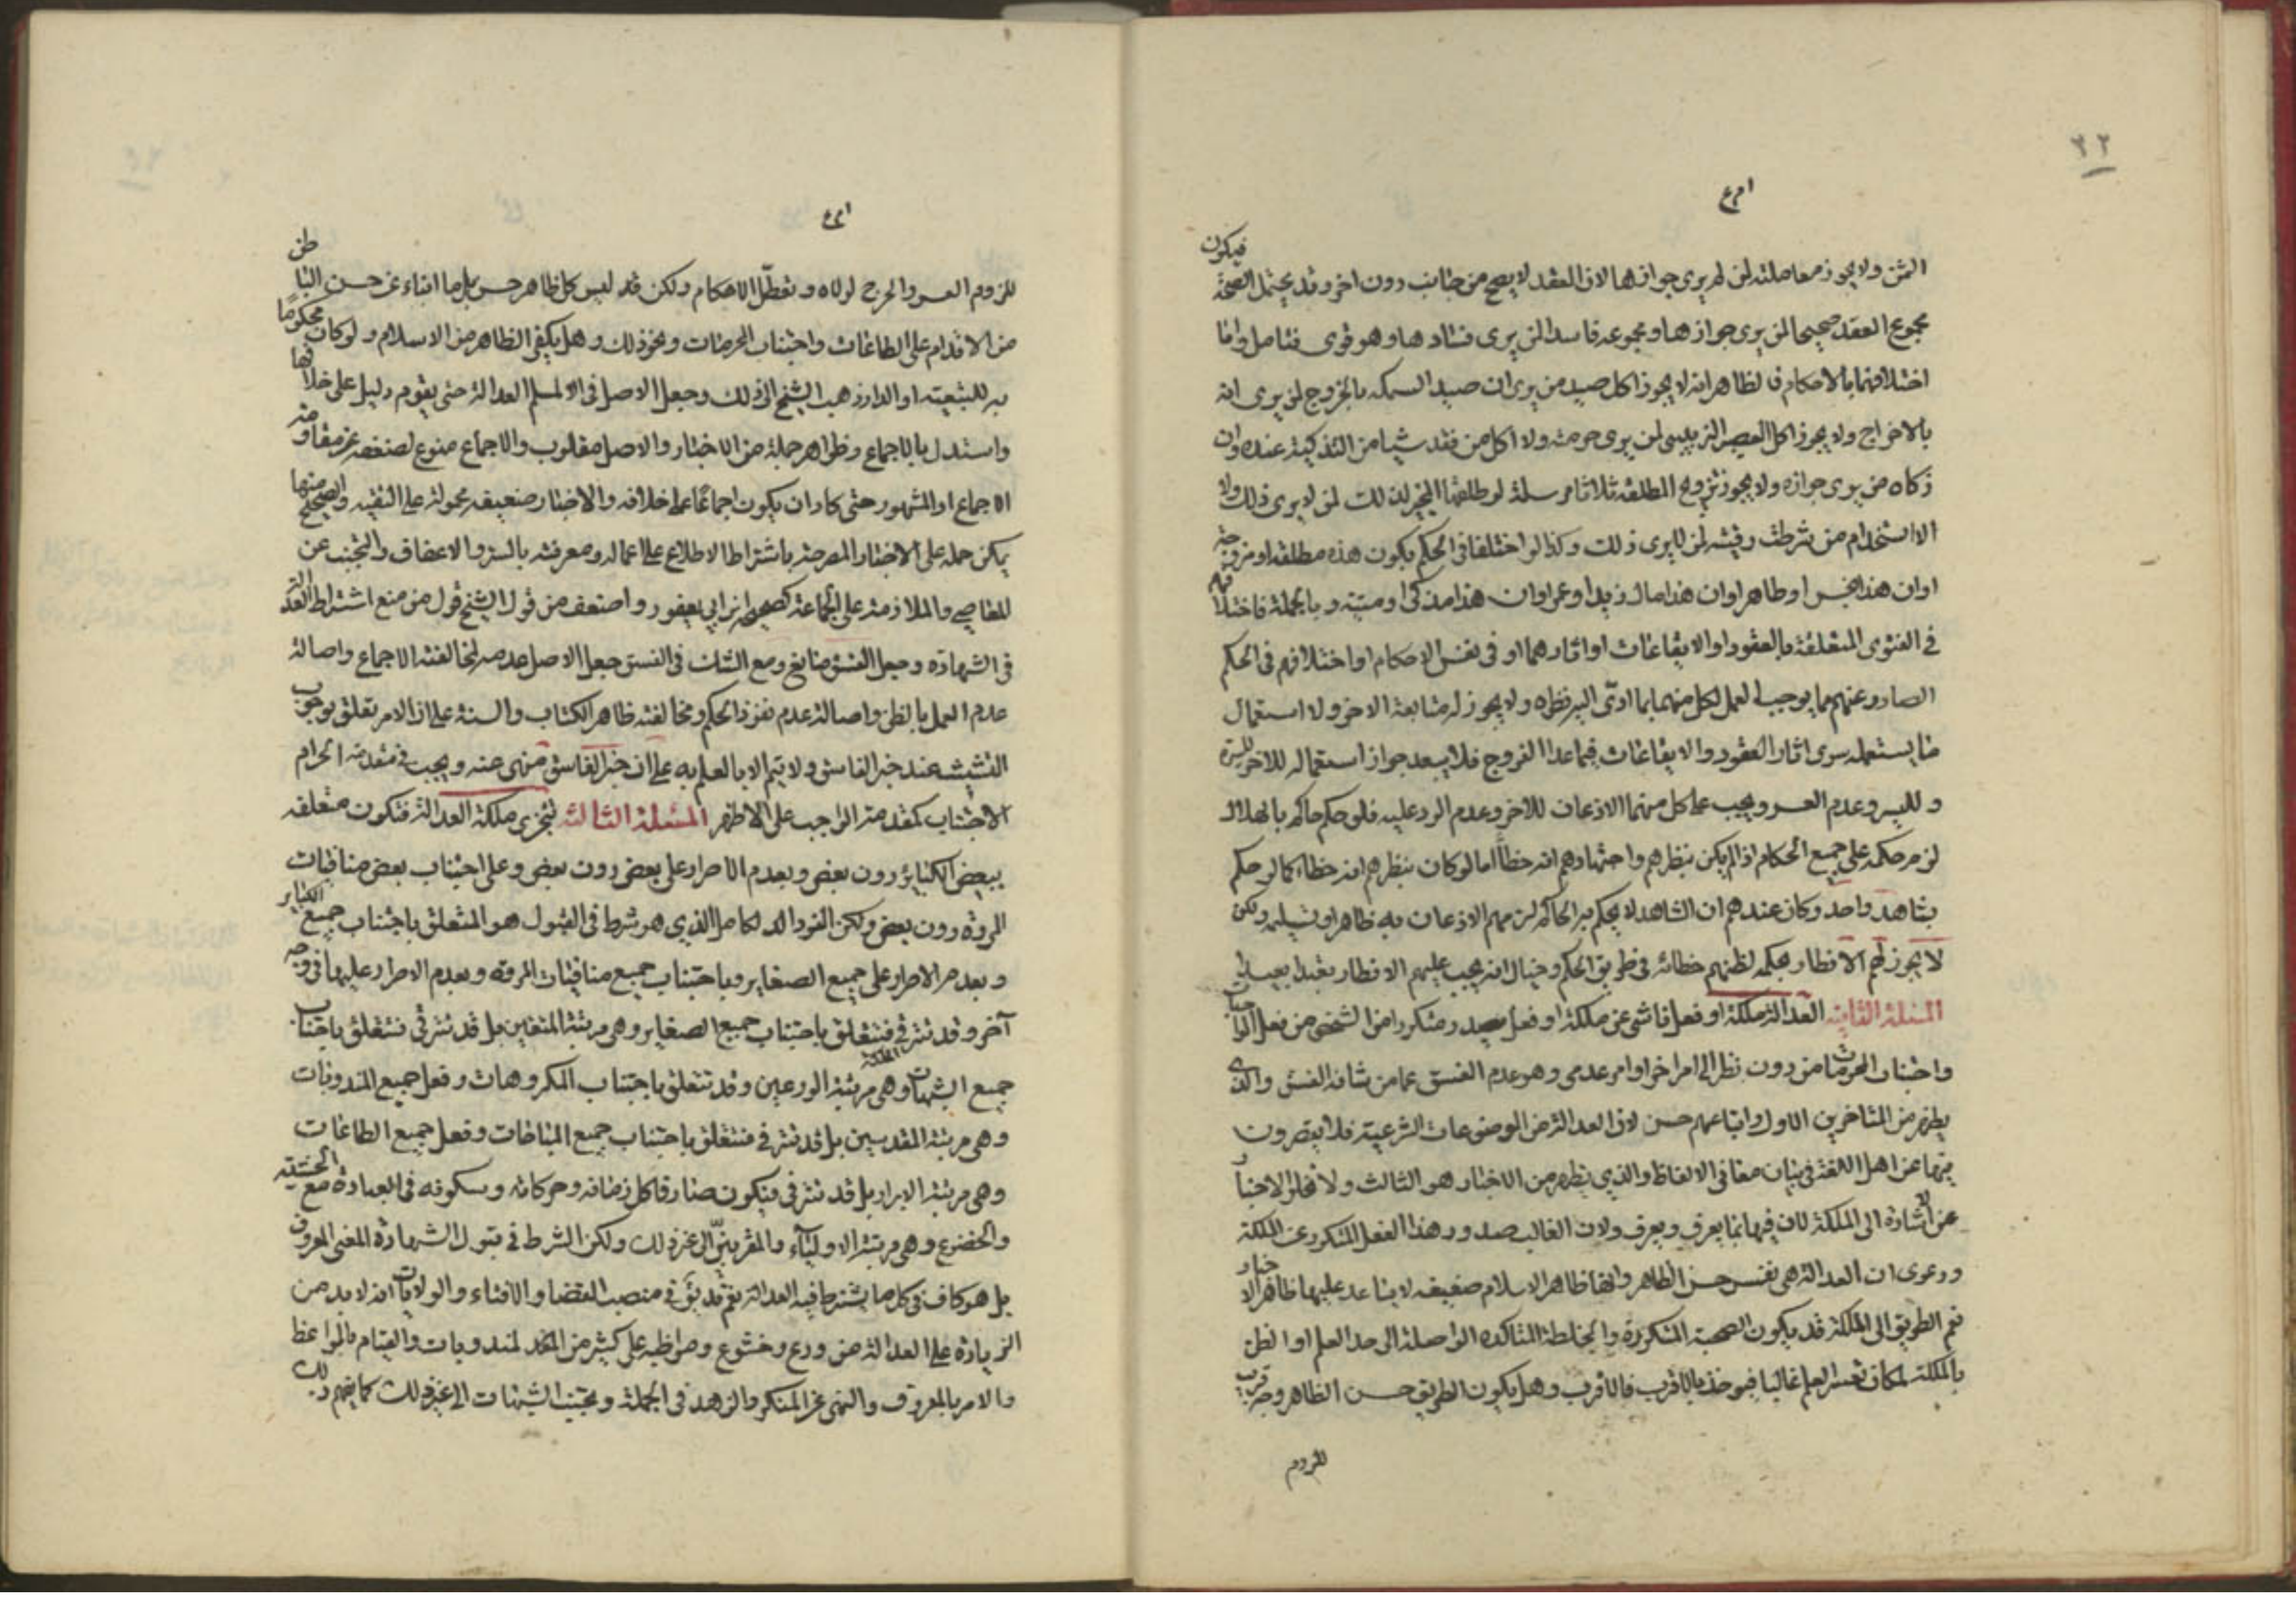 ٣٢
فيكون
الثمن ولا يجوز معاملته لمن لم يرى جوازها لان العقد لا يصح من جانب دون اخر وقد يحتمل الصحة
مجموع العقد صحيحا لمن يرى جوازها ومجموعه فاسدا لمن يرى فسادها وهو قوى فتامل واما
اختلافهما بالاحكام فالظاهر انه لا يجوز اكل صيد من يرى ان صيد السمكه بالخروج لمن يرى انه
بالاخراج ولا يجوز اكل العصير الزبيبى لمن يرى حرمته ولا اكل من فقد شيئا من التذكية عنده وان
ذكاه من يرى جوازه ولا يجوز تزويج المطلقه ثلاثا مرسلة لو طلقها المخبر لذلك لمن لا يرى ذلك ولا
الاستخدام من شرطت رقيته لمن لا يرى ذلك وكذا لو اختلفا فى الحكم بكون هذه مطلقه او مزوجة
او ان هذا نجس او طاهر او ان هذا مال زيد او عمر او ان هذا مذكى او ميتة وبالجملة فاختلافهم
في الفتوى المتعلقة بالعقود او الايقاعات او اثارهما او فى نفس الاحكام او اختلافهم فى الحكم
الصادر عنهم مما يوجب العمل لكل منهما بما ادى اليه نظره ولا يجوز له متابعة الاخر ولا استعمال
ما يستعمله سوى اثار العقود والايقاعات فيما عدا الفروج فلا يبعد جواز استعماله للاخر للسيرة
ولليسر وعدم العسر ويجب على كل منهما الاذعان للاخر وعدم الرد عليه فلو حكم حاكم بالهلال
لزم حكمه على جميع الحكام اذا لم يكن بنظرهم واجتهادهم انه خطأ اما لو كان بنظرهم انه خطاء كما لو حكم
بشاهد واحد وكان عندهم ان الشاهد لا يحكم به الحاكم لزمهم الاذعان به ظاهرا وتسليمه ولكن
لا يجوز لهم الافطار بحكمه لظنهم خطائه فى طريق الحكم
المسئلة الثانية العدالة ملكة او فعل ناشى عن ملكة او فعل يصدر متكررا من الشخص من فعل الواجبات
واجتناب المحرمات من دون نظر الى امر اخر او امر عدمى وهو عدم الفسق عما من شانه الفسق والذى
يظهر من المتاخرين الاول واتباعهم حسن لان العدالة من الموضوعات الشرعية فلا يقصرون
فيها عن اهل اللغة فى بيان معانى الالفاظ والذي يظهر من الاخبار هو الثالث ولا تخلو الاخبار
عن الاشارة الى الملكة لان فيها بما يعرف ويعرف ولان الغالب صدور هذا الفعل المتكرر عن الملكة
ودعوى ان العدالة هى نفس حسن الظاهر وانها ظاهر الاسلام ضعيفه لا يساعد عليها ظاهر الاخبار
نعم الطريق الى الملكة قد يكون الصحبة المتكررة والمخلطة المتاكده الواصلة الى حد العلم او الظن
بالملكة لمكان تعسر العلم غالبا فيوخذ بالاقرب فالاقرب وهل يكون الطريق حسن الظاهر وجه قريب
للزوم
للزوم العسر والحرج لولاه وتعطل الاحكام ولكن قد ليس كل ظاهر حسن بل ما انباء عن حسن الباطن
من الاقدام على الطاعات واجتناب المحرمات ونحو ذلك وهل يكفى الظاهر من الاسلام ولو كان محكوما
به للتبعية او الدار ذهب الشيخ الى ذلك وجعل الاصل فى المسلم العدالة حتى يقوم دليل على خلافها
واستدل بالاجماع وظواهر جملة من الاخبار والاصل مقلوب والاجماع ممنوع لضعفه عن مقاومة
الاجماع او المشهور حتى كاد ان يكون اجماعا على خلافه والاخبار ضعيفه محمولة على التقيه والصحيح منها
يمكن حمله على الاخبار المصرحة باشتراط الاطلاع على اعماله ومعرفته بالستر والاعفاف والتجنب عن
المعاصي والملازمة على الجماعة كصحيحه ابن ابي يعفور واضعف من قول الشيخ قول من منع اشتراط العدالة
في الشهادة وجعل الفسق مانع ومع الشك فى الفسق جعل الاصل عدمه لمخالفته الاجماع واصالة
عدم العمل بالظن واصالة عدم نفوذ الحكم ومخالفته ظاهر الكتاب والسنة على ان الامر تعلق بوجوب
التثبت عند خبر الفاسق ولا يتم الا بالعلم به على ان خبر الفاسق منهى عنه ويجب فى مقدمه الحرام
الاجتناب كمقدمة الواجب على الاظهر المسئلة الثالثة تتجزى ملكة العدالة فتكون متعلقه
ببعض الكبائر دون بعض وبعدم الاصرار على بعض دون بعض وعلى اجتناب بعض منافيات
المروة دون بعض ولكن الفرد الكامل الذي هو شرط فى القبول هو المتعلق باجتناب جميع الكباير
وبعدم الاصرار على جميع الصغاير وباجتناب جميع منافيات المروة وبعدم الاصرار عليها فى وجه
آخر وقد تترقى فتتعلق باجتناب جميع الصغاير وهى مرتبة المتقين بل قد تترقى فتتعلق باجتناب
جميع الشبهات وهى مرتبة الورعين وقد تتعلق باجتناب المكروهات وفعل جميع المندوبات
وهى مرتبة المقدسين بل قد تترقى فتتعلق باجتناب جميع المباحات وفعل جميع الطاعات
وهى مرتبة الابرار بل قد تترقى فيكون صارفا كل زمانه وحركاته وسكونه فى العبادة مع الخشية
والخضوع وهى مرتبة الاولياء والمقربين الى غير ذلك ولكن الشرط فى قبول الشهادة المعنى المعروف
بل هو كاف فى كل ما يشترط فيه العدالة نعم قد يتوق فى منصب القضا والافتاء والولايات انه لا بد من
الزيادة على العدالة من ورع وخشوع ومواظبه على كثير من المندوبات والقيام بالمواعظ
والامر بالمعروف والنهى عن المنكر والزهد فى الجملة وتجنب الشبهات الى غير ذلك كما يفهم ذلك